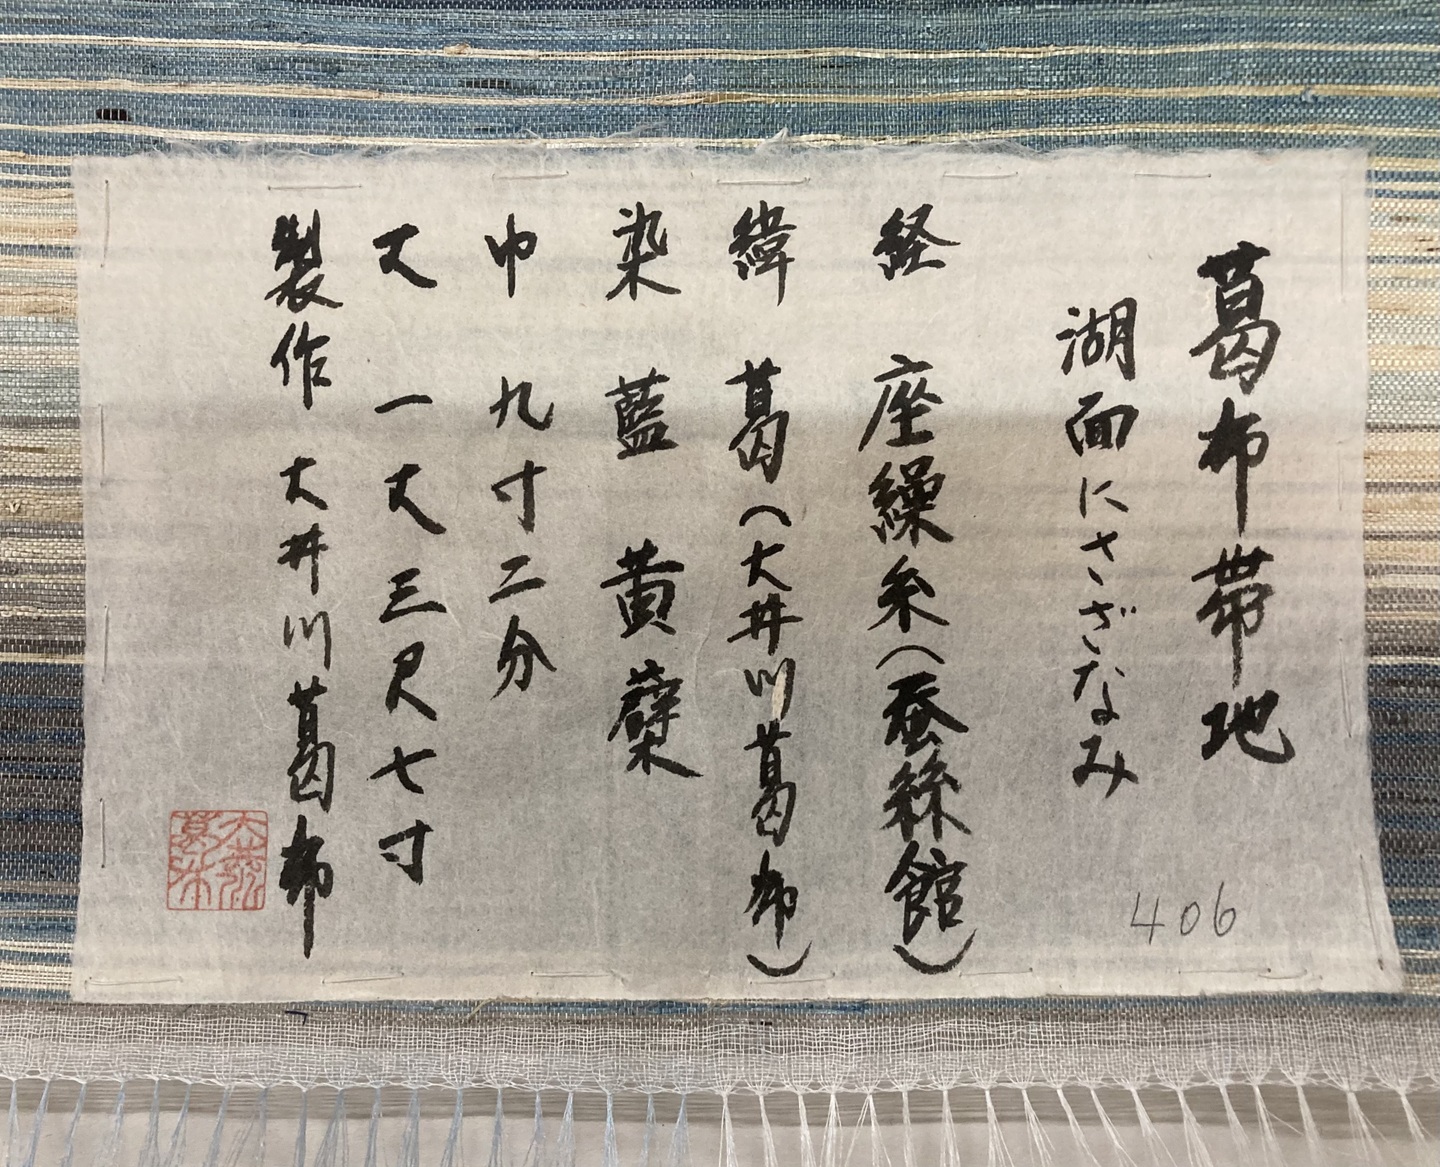 葛布帯地
湖面にさざなみ
経 座繰糸(蚕絲館)
緯 葛(大井川葛布)
染 藍 黄蘗
巾 九寸二分
丈 一丈三尺七寸
製作 大井川葛布
大井川葛布
406